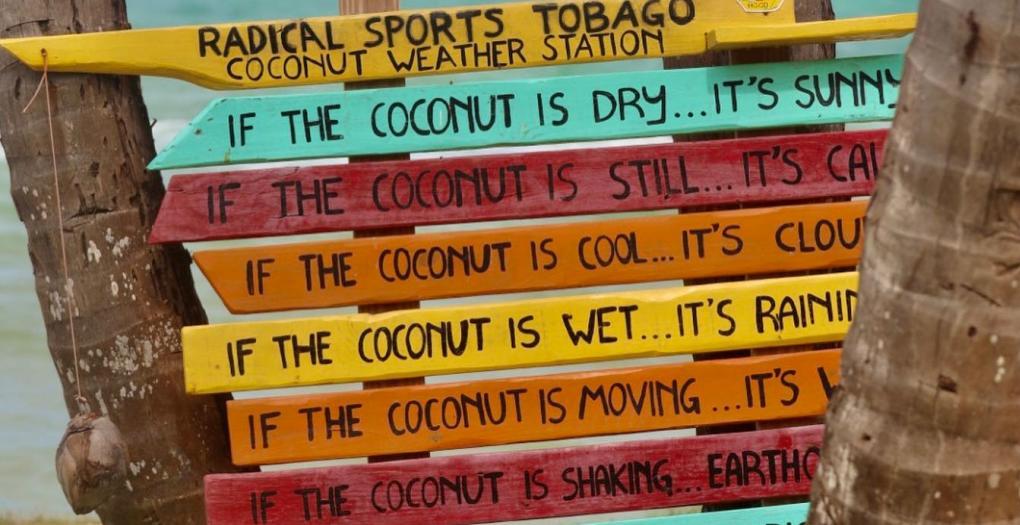 RADICAL SPORTS TOBAGO
COCONUT WEATHER STATION
IF THE COCONUT IS DRY...IT'S SUNNY
IF THE COCONUT IS STILL... IT'S CAL
IF THE COCONUT IS COOL...IT'S CLOU
IF THE COCONUT IS WET...IT'S RAININ
IF THE COCONUT IS MOVING ...IT'S W
IF THE COCONUT IS SHAKING... EARTHQ